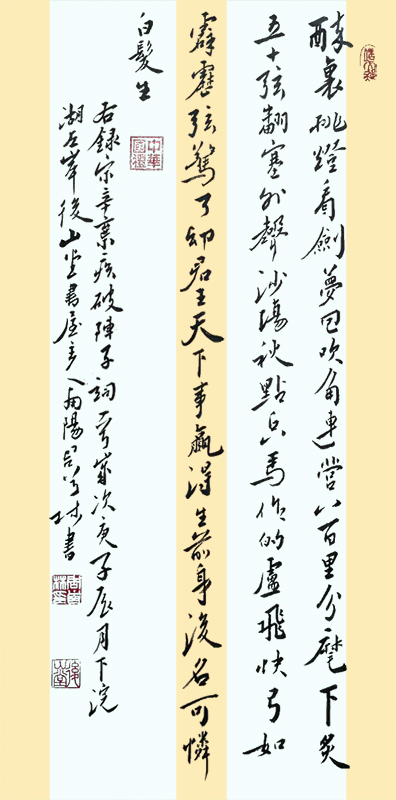 醉裏挑燈看劍夢回吹角連營八百里分麾下炙
五十弦翻塞外聲沙場秋點兵馬作的盧飛快弓如
霹靂弦驚了却君王天下事贏得生前身後名可憐
白髮生
中華
右錄宋辛棄疾破陣子詞一首歲次庚子辰月下浣
湖左岸後山堂書屋主人南陽書